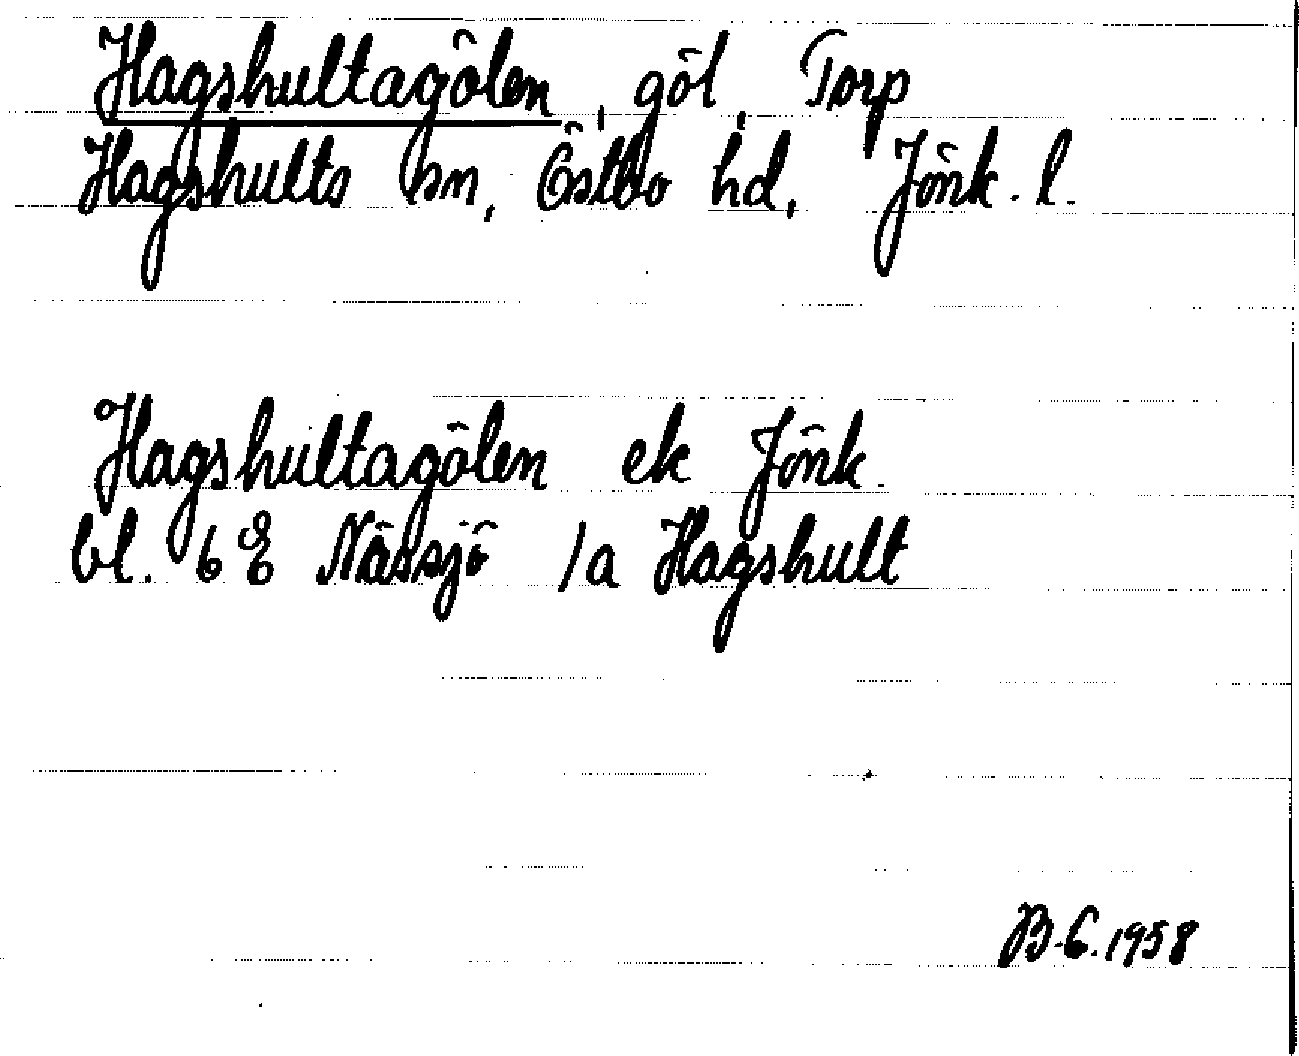 Hagshultagölen, göl, Torp
Hagshults sn, Östbo hd, Jönk. l.
Hagshultagölen ek Jönk.
bl. 6 E Nässjö /a Hagshult
B-G. 1958